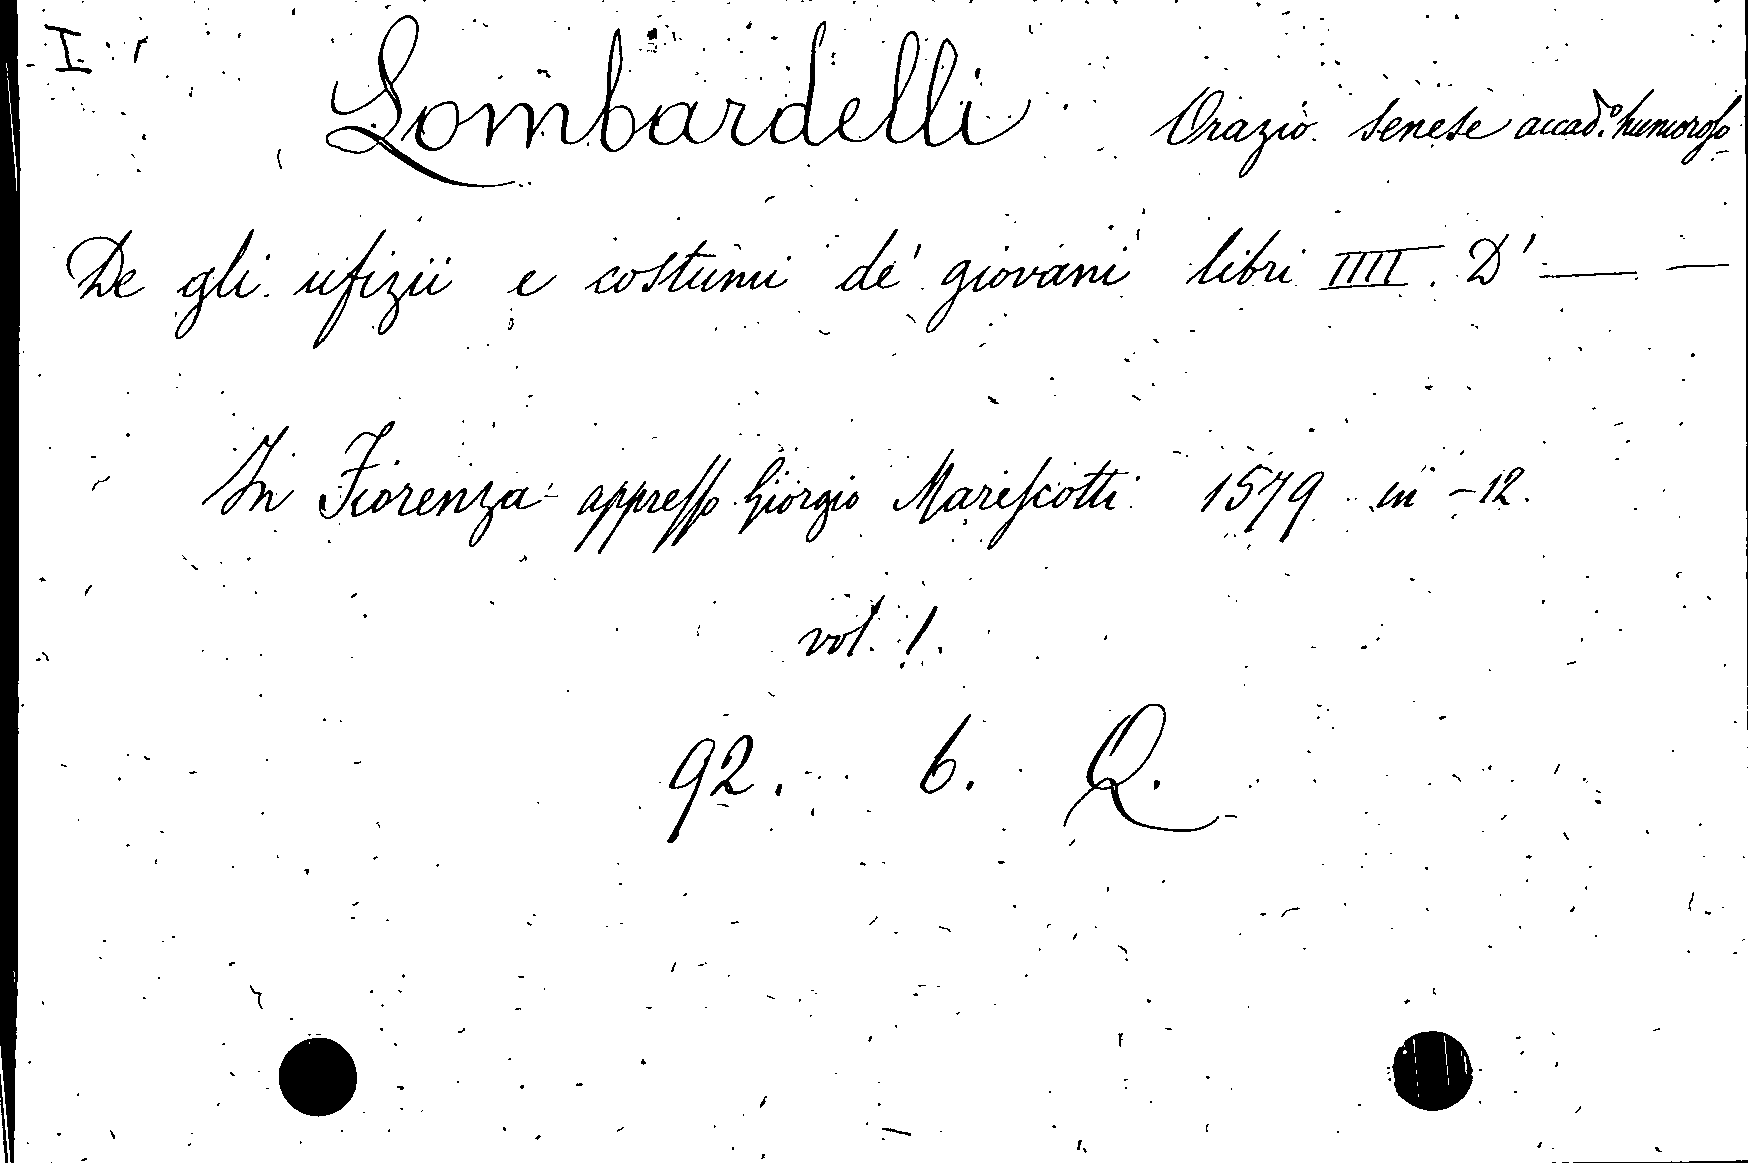 I
Lombardelli Orazio senese accad.º humoroso
De gli ufizii e costumi de' giovani libri IIII. D' — —
In Fiorenza appresso Giorgio Marescotti 1579 in -12.
vol. 1.
92. 6. Q.